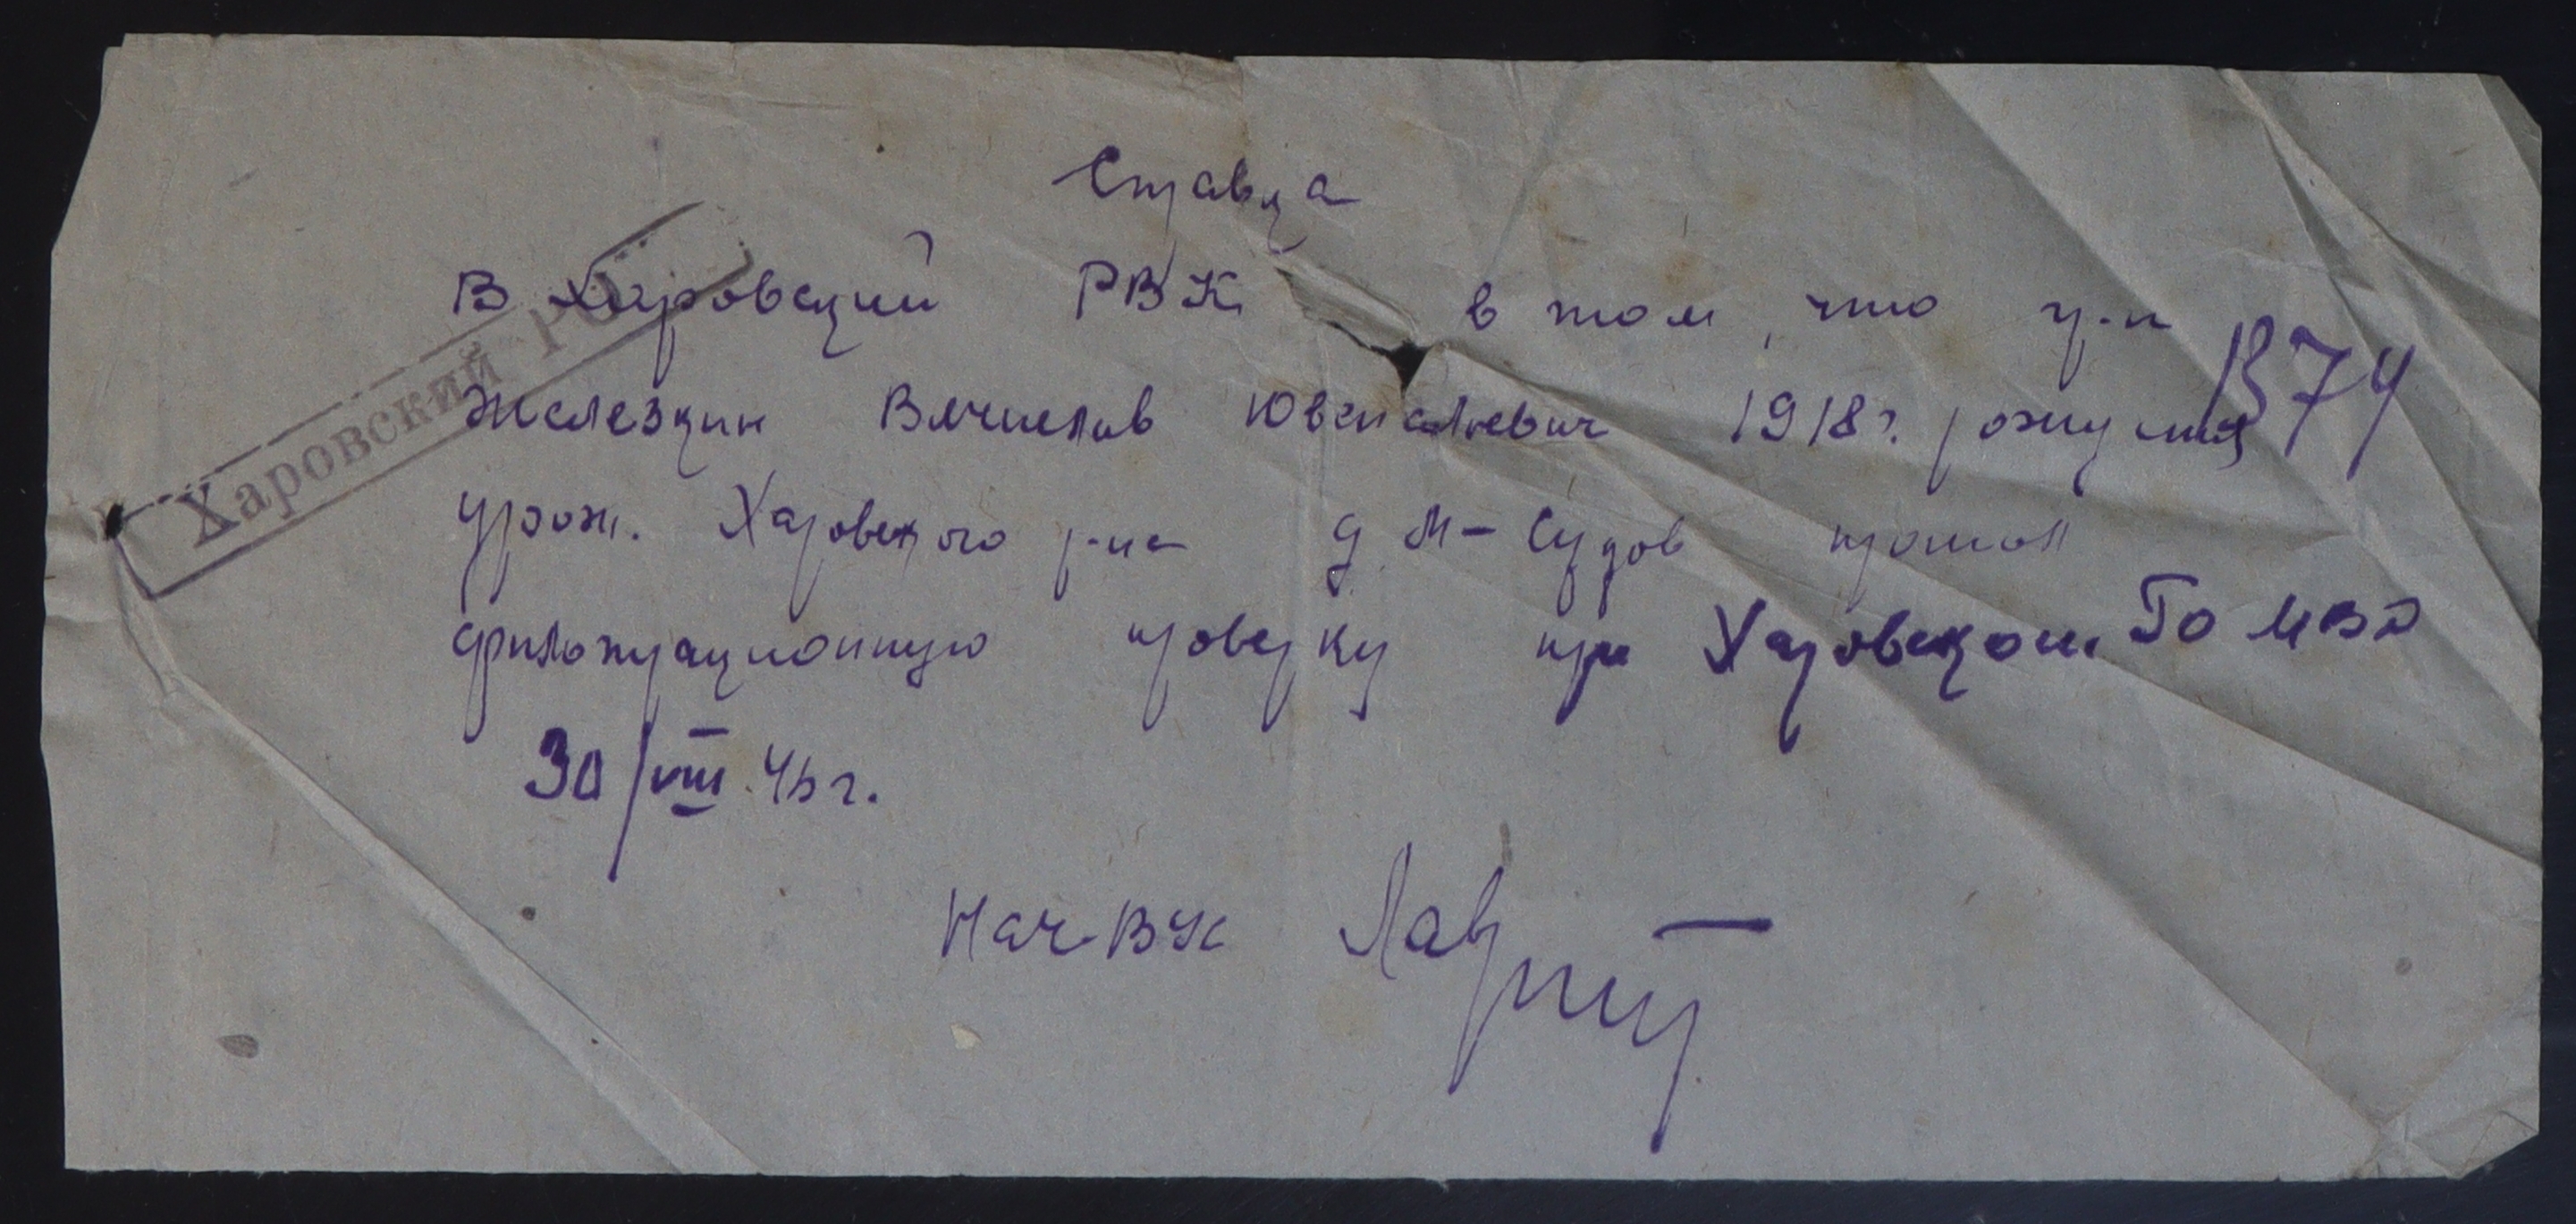 Справка
В Харовский РВК в том, что гр-н
Железкин Вячеслав Ювенальевич 1918 г. рождения
В 74
урож. Харовского р-на д. М-Судов прошол
фильтрационную проверку при Харовском ГО МВД
30/VIII 46 г.
Нач ВУС
Харовский РО